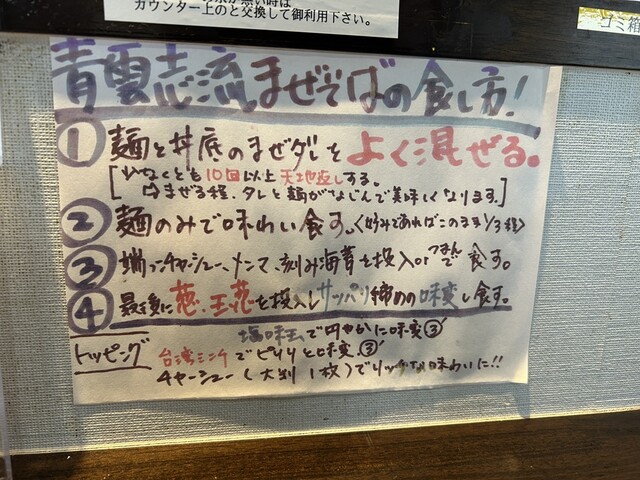 カウンター上のと交換して御利用下さい。
ゴミ箱
青雲志流 まぜそばの食し方!
① 麺と丼底のまぜダレをよく混ぜる。
[少なくとも10回以上天地返しする。
混ぜる程、タレと麺がなじんで美味しくなります。]
② 麺のみで味わい食す。<好みであればこのまま1/3程>
③ チャーシュー、メンマ、刻み海苔を投入orつまんで食す。
④ 最後に葱、玉葱を投入しサッパリ締めの味変し食す。
塩味玉で円やかに味変③'
トッピング
台湾ミンチでピリリと味変③'
チャーシュー(大判1枚)でリッチな味わいに!!